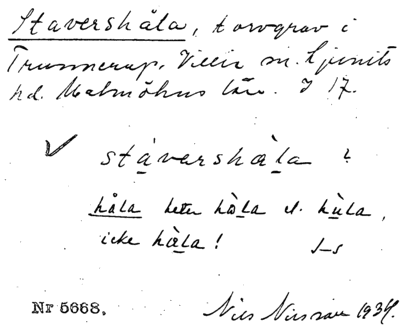 Stavershåla, torvgrav i
Trunnerup. Villie sn. Ljunits
hd. Malmöhus län. I 17.
✓ stávershåla ?
håla heter håla el. hula,
icke håla! J–s
Nr 5668. Nils Nilsson 1934.